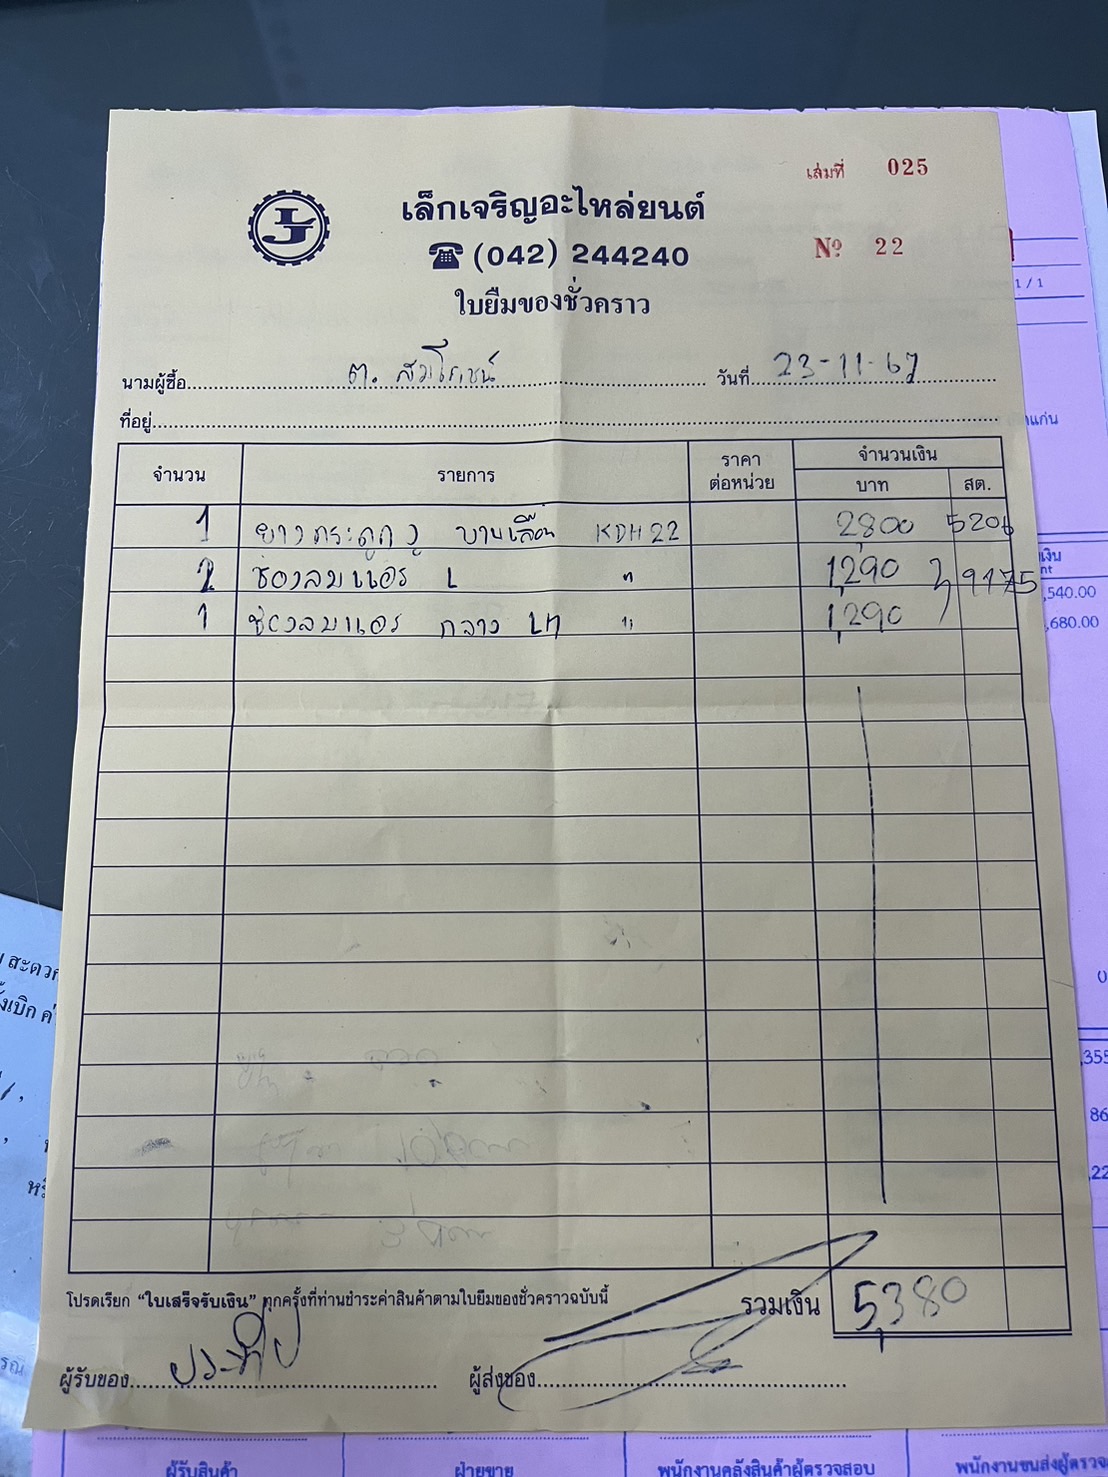 เล่มที่ 025
LJ
เล็กเจริญอะไหล่ยนต์
☎ (042) 244240
Nº 22
ใบยืมของชั่วคราว
1 / 1
นามผู้ซื้อ ต. สัมโรชน์ วันที่ 23-11-67
ที่อยู่
จำนวน รายการ ราคาต่อหน่วย จำนวนเงิน
บาท สต.
1 ยางกระดูกงู บานเลื่อน KDH 22 2,800 5206
2 ช่องลมแอร์ L " 1,290 9175
1 ช่องลมแอร์ กลาง " 1,290
,540.00
,680.00
โปรดเรียก "ใบเสร็จรับเงิน" ทุกครั้งที่ท่านชำระค่าสินค้าตามใบยืมของชั่วคราวฉบับนี้
รวมเงิน 5,380
ผู้รับของ ประทีป ผู้ส่งของ
ผู้รับสินค้า ฝ่ายขาย พนักงานคลังสินค้าผู้ตรวจสอบ พนักงานขนส่งผู้ตรวจ